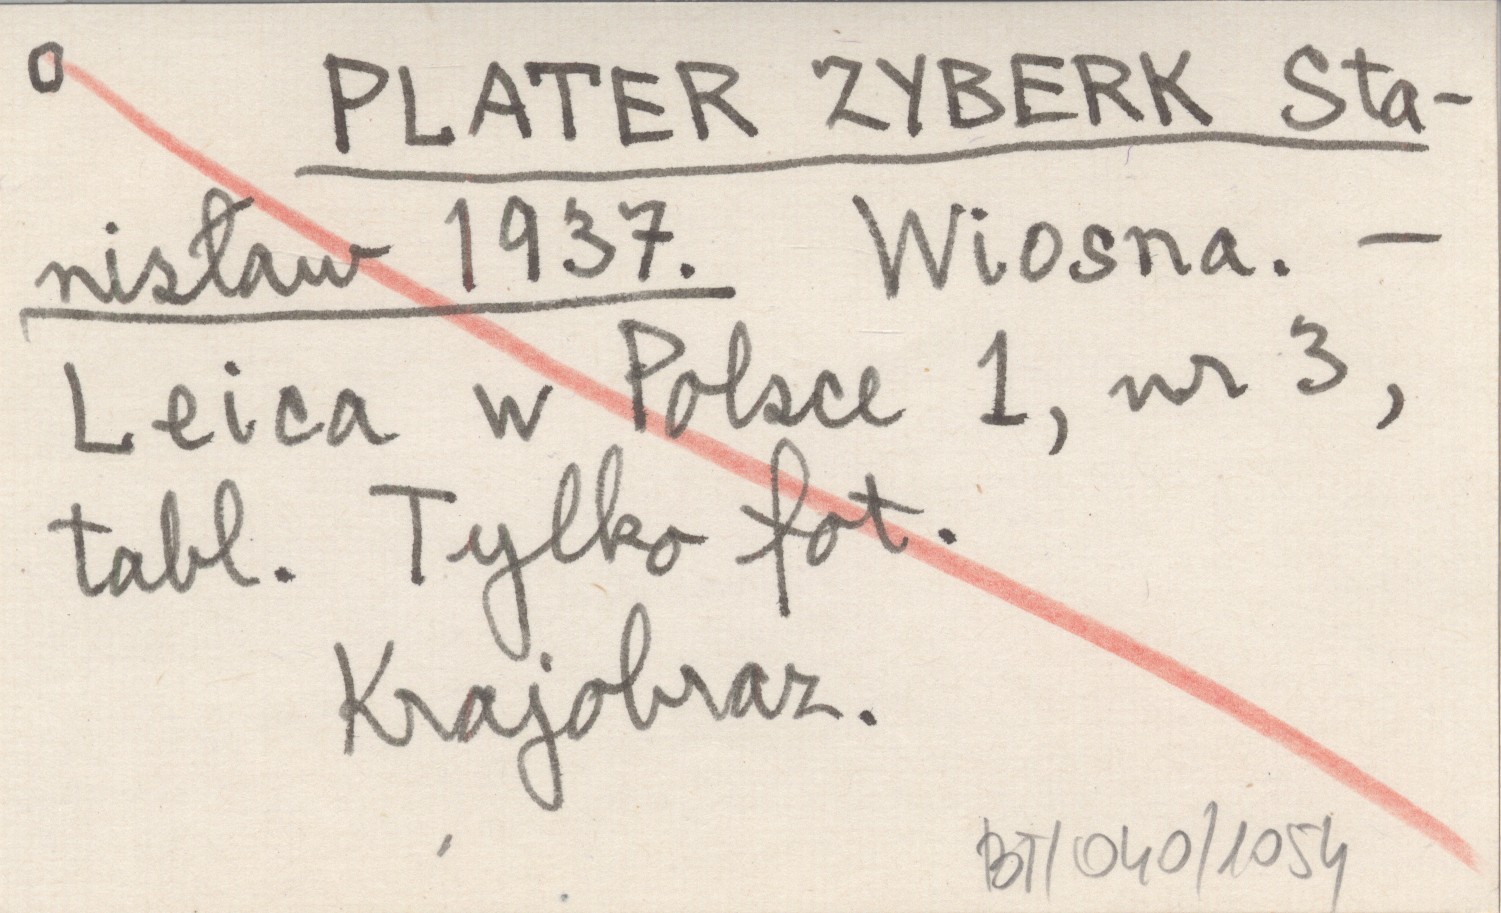 O PLATER ZYBERK Sta-
nisław 1937. Wiosna. —
Leica w Polsce 1, nr 3,
tabl. Tylko fot.
Krajobraz.
BT/040/1054